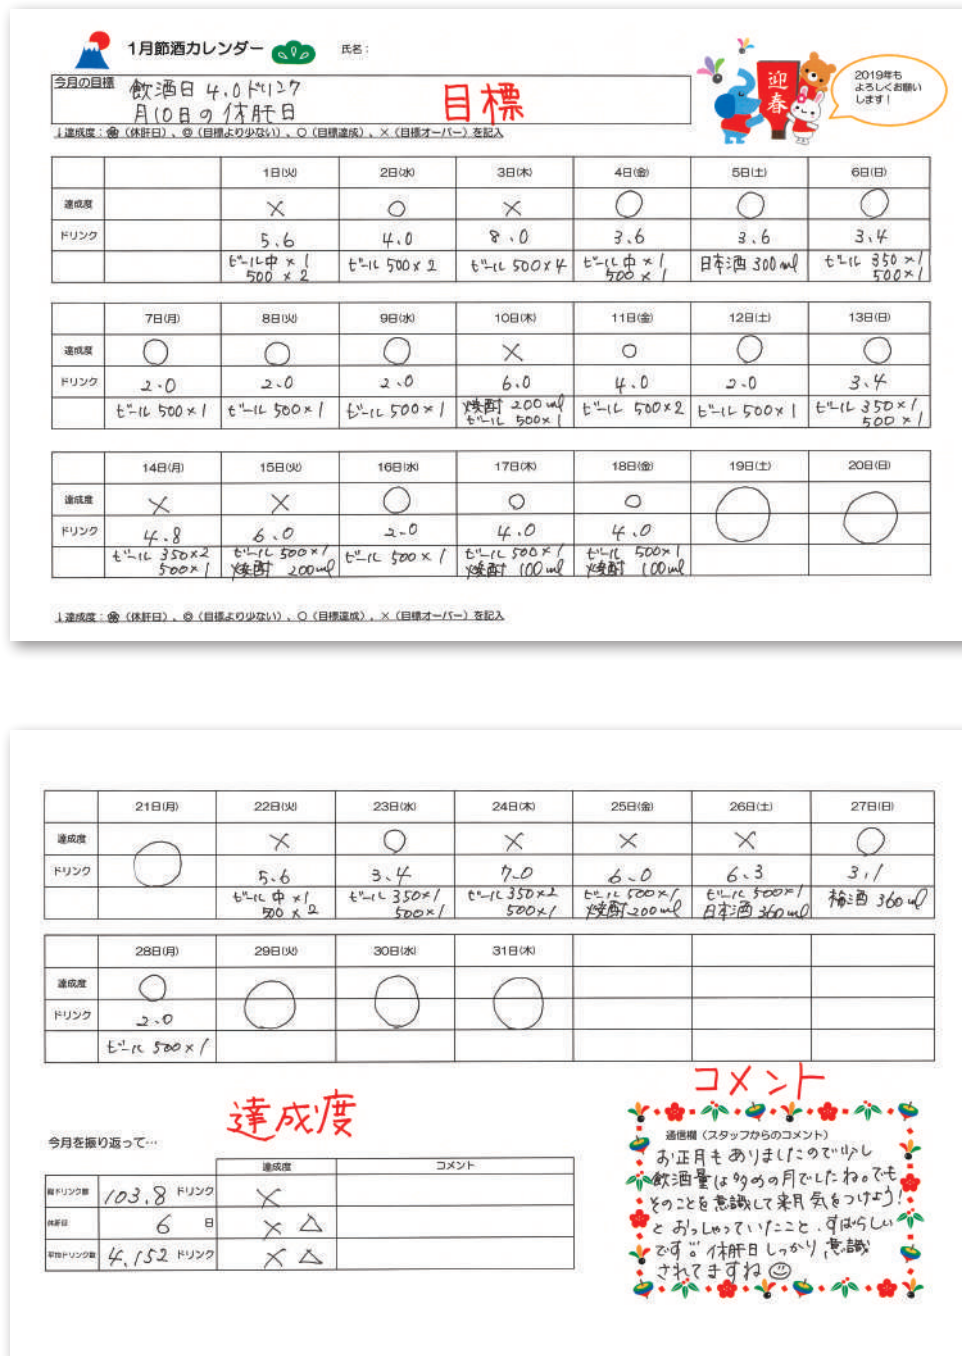 1月節酒カレンダー
氏名：
今月の目標
飲酒日 4.0ドリンク
月10日の休肝日
目標
迎春
2019年も
よろしくお願い
します！
↓達成度：（休肝日）、◎（目標より少ない）、〇（目標達成）、×（目標オーバー）を記入
1日(火) 2日(水) 3日(木) 4日(金) 5日(土) 6日(日)
達成度 × ○ × ○ ○ ○
ドリンク 5.6 4.0 8.0 3.6 3.6 3.4
ビール中×1 ビール500×2 ビール500×4 ビール中×1 日本酒300ml ビール350×1
500×2 500×1 500×1
7日(月) 8日(火) 9日(水) 10日(木) 11日(金) 12日(土) 13日(日)
達成度 ○ ○ ○ × ○ ○ ○
ドリンク 2.0 2.0 2.0 6.0 4.0 2.0 3.4
ビール500×1 ビール500×1 ビール500×1 焼酎200ml ビール500×2 ビール500×1 ビール350×1
ビール500×1 500×1
14日(月) 15日(火) 16日(水) 17日(木) 18日(金) 19日(土) 20日(日)
達成度 × × ○ ○ ○ ○ ○
ドリンク 4.8 6.0 2.0 4.0 4.0
ビール350×2 ビール500×1 ビール500×1 ビール500×1 ビール500×1
500×1 焼酎200ml 焼酎100ml 焼酎100ml
↓達成度：（休肝日）、◎（目標より少ない）、〇（目標達成）、×（目標オーバー）を記入
21日(月) 22日(火) 23日(水) 24日(木) 25日(金) 26日(土) 27日(日)
達成度 ○ × ○ × × × ○
ドリンク 5.6 3.4 7.0 6.0 6.3 3.1
ビール中×1 ビール350×1 ビール350×2 ビール500×1 ビール500×1 梅酒360ml
500×2 500×1 500×1 焼酎200ml 日本酒360ml
28日(月) 29日(火) 30日(水) 31日(木)
達成度 ○ ○ ○ ○
ドリンク 2.0
ビール500×1
達成度
今月を振り返って…
達成度 コメント
総ドリンク数 103.8 ドリンク ×
休肝日 6 日 × △
平均ドリンク数 4.152 ドリンク × △
コメント
通信欄（スタッフからのコメント）
お正月もありましたので少し
飲酒量は多めの月でしたね。でも
そのことを意識して来月気をつけよう！
とおっしゃっていたこと、すばらしい
です。休肝日しっかり意識
されてますね